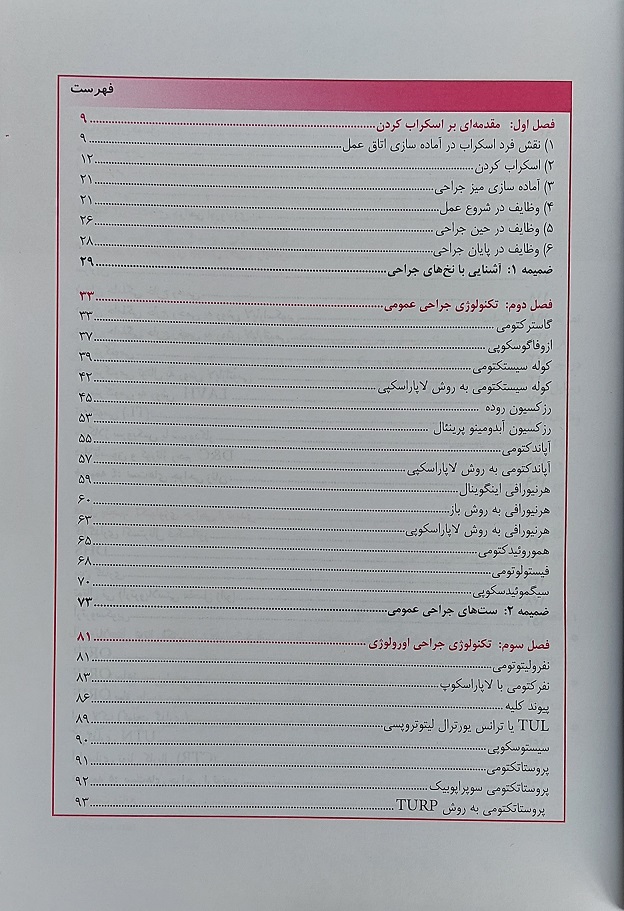 فهرست
فصل اول: مقدمه‌ای بر اسکراب کردن ۹
۱) نقش فرد اسکراب در آماده سازی اتاق عمل ۹
۲) اسکراب کردن ۱۲
۳) آماده سازی میز جراحی ۲۱
۴) وظایف در شروع عمل ۲۱
۵) وظایف در حین جراحی ۲۶
۶) وظایف در پایان جراحی ۲۸
ضمیمه ۱: آشنایی با نخ‌های جراحی ۲۹
فصل دوم: تکنولوژی جراحی عمومی ۳۳
گاسترکتومی ۳۳
ازوفاگوسکوپی ۳۷
کوله سیستکتومی ۳۹
کوله سیستکتومی به روش لاپاراسکپی ۴۲
رزکسیون روده ۴۵
رزکسیون آبدومینو پرینئال ۵۳
آپاندکتومی ۵۵
آپاندکتومی به روش لاپاراسکپی ۵۷
هرنیورافی اینگوینال ۵۹
هرنیورافی به روش باز ۶۰
هرنیورافی به روش لاپاراسکوپی ۶۳
هموروئیدکتومی ۶۵
فیستولوتومی ۶۸
سیگموئیدسکوپی ۷۰
ضمیمه ۲: ست‌های جراحی عمومی ۷۳
فصل سوم: تکنولوژی جراحی اورولوژی ۸۱
نفرولیتوتومی ۸۱
نفرکتومی با لاپاراسکوپ ۸۳
پیوند کلیه ۸۶
TUL یا ترانس یورترال لیتوتروپسی ۸۹
سیستوسکوپی ۹۰
پروستاتکتومی ۹۱
پروستاتکتومی سوپراپوبیک ۹۲
پروستاتکتومی به روش TURP ۹۳